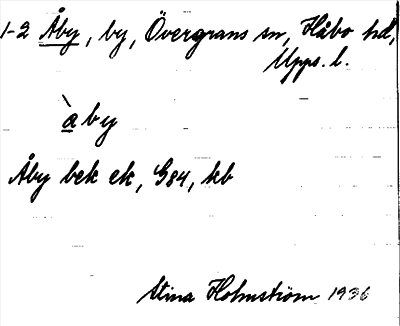 1-2 Åby, by, Övergrans sn, Håbo hd,
Upps. l.
àby
Åby bek ek, G84, kb
Stina Holmström 1936